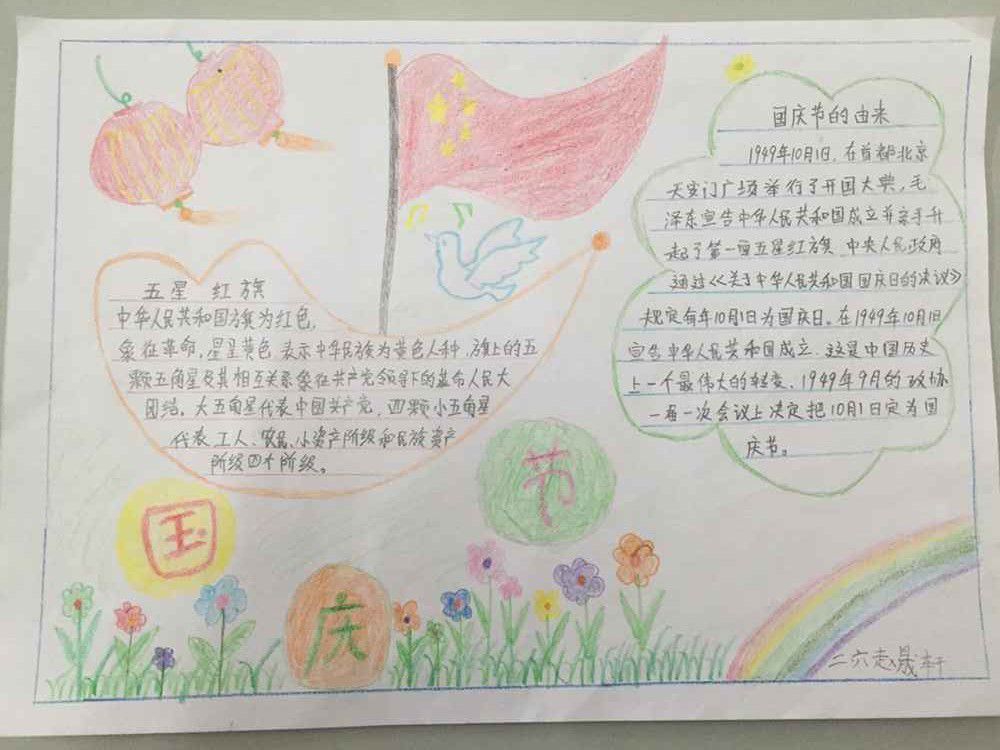 国庆节的由来
1949年10月1日,在首都北京
天安门广场举行了开国大典,毛
泽东宣告中华人民共和国成立并亲手升
起了第一面五星红旗.中央人民政府
通过《关于中华人民共和国国庆日的决议》
规定每年10月1日为国庆日。在1949年10月1日
宣告中华人民共和国成立.这是中国历史
上一个最伟大的转变、1949年9月的政协
一届一次会议上决定把10月1日定为国
庆节。
五星 红旗
中华人民共和国旗为红色,
象征革命,星呈黄色.表示中华民族为黄色人种.旗上的五
颗五角星及其相互关系象征共产党领导下的革命人民大
团结。大五角星代表中国共产党,四颗小五角星
代表工人、农民、小资产阶级和民族资产
阶级四个阶级。
国
庆
节
二六 晟轩